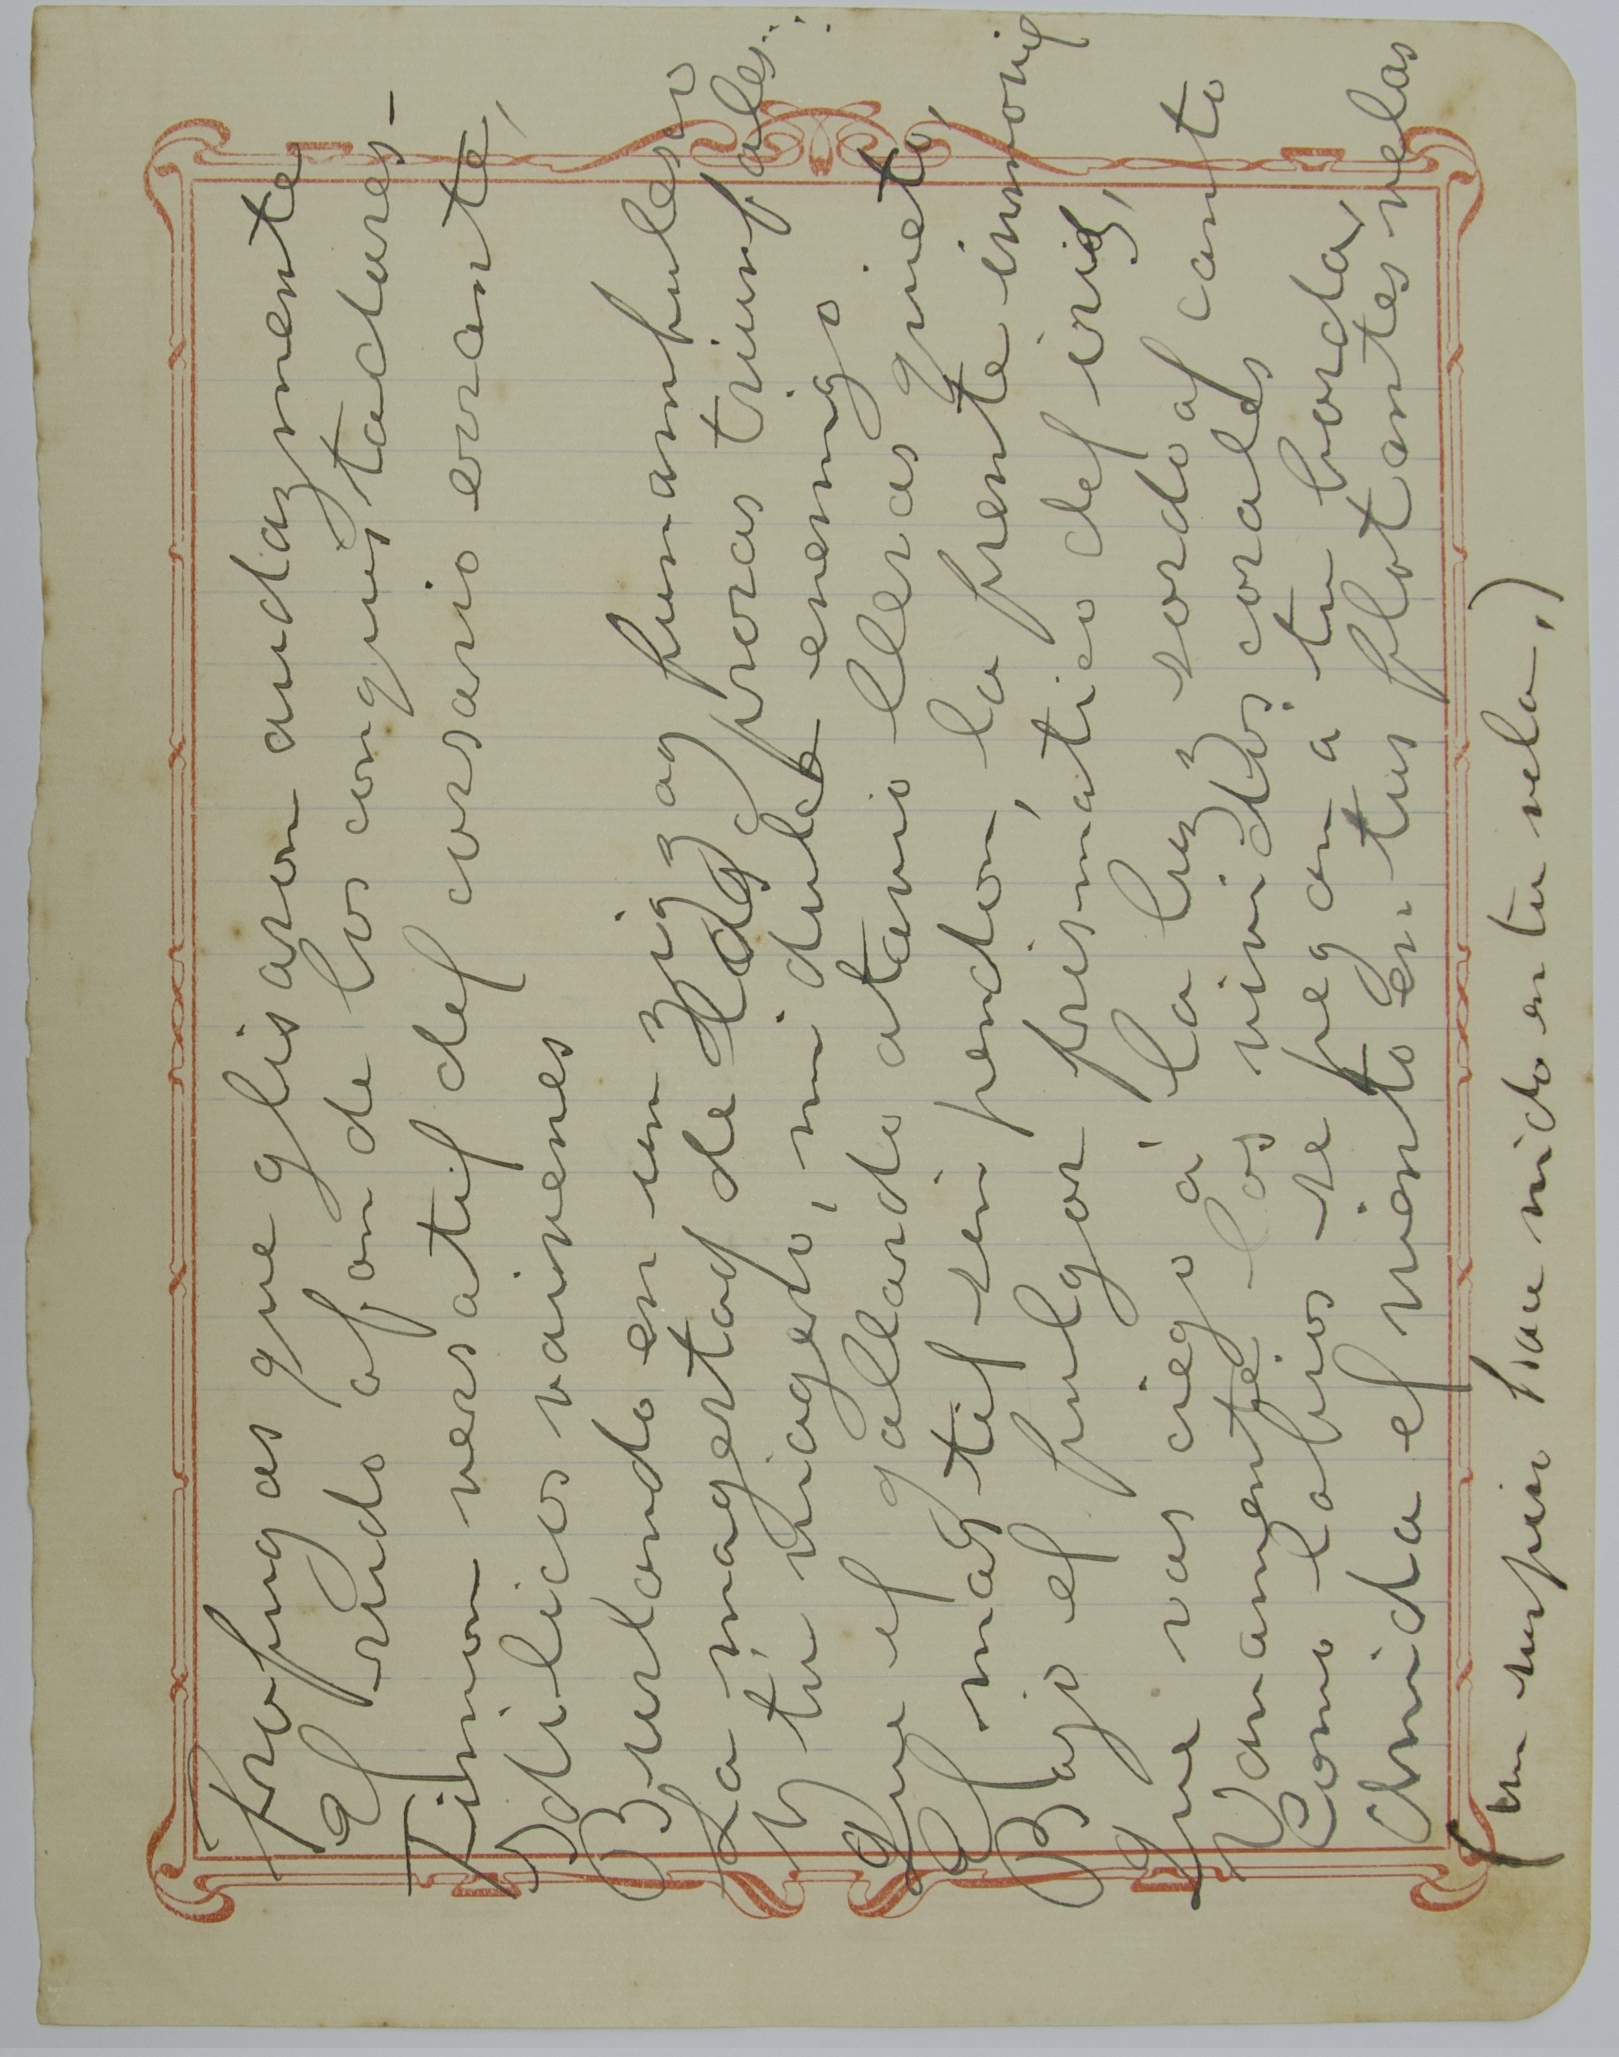 Profugas que glisaron audazmente
El rudo afan de los conquistadores-
Timon versatil del corsario errante,
Idilicos vaivenes
Burlando en un zig zag funambulesco
La magestad de las proras triunfales...
Y tu viagero, mi dulce enemigo
Que el gallardo atavio lleras quieto,
El mastil sin pendon, la frente inmovil
Bajo el fulgor prismatico del iris,
Que vas ciego á la luz y sordo al canto
Vanamente los vividos corales
Como labios se pegan a tu borda,
Anida el viento en tus flotantes velas
(un suspiro hace nido en tu vela,)